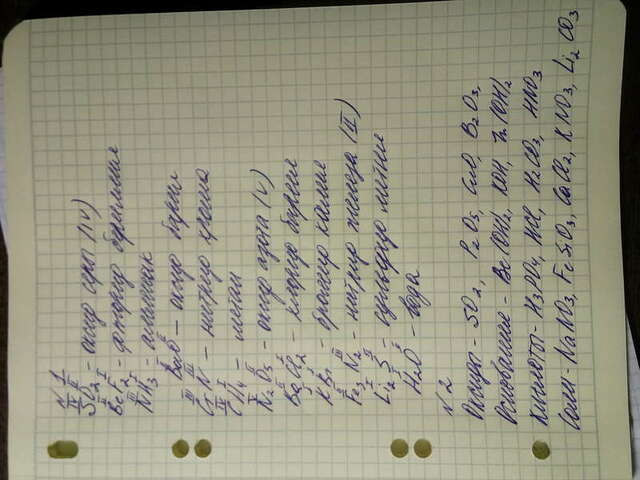 N 1
IV II
SO2 - оксид серы (IV)
II I
BeF2 - фторид бериллия
III I
NH3 - аммиак
II II
BaO - оксид бария
III III
CrN - нитрид хрома
IV I
CH4 - метан
V II
N2O5 - оксид азота (V)
II I
BaCl2 - хлорид бария
I I
KBr - бромид калия
II III
Fe3N2 - нитрид железа (II)
I II
Li2S - сульфид лития
I II
H2O - вода
N 2
Оксиды - SO2, P2O5, CuO, B2O3,
Основания - Be(OH)2, KOH, Zn(OH)2
Кислоты - H3PO4, HCl, H2CO3, HNO3
Соли - NaNO3, FeSiO3, CaCl2, KNO3, Li2CO3